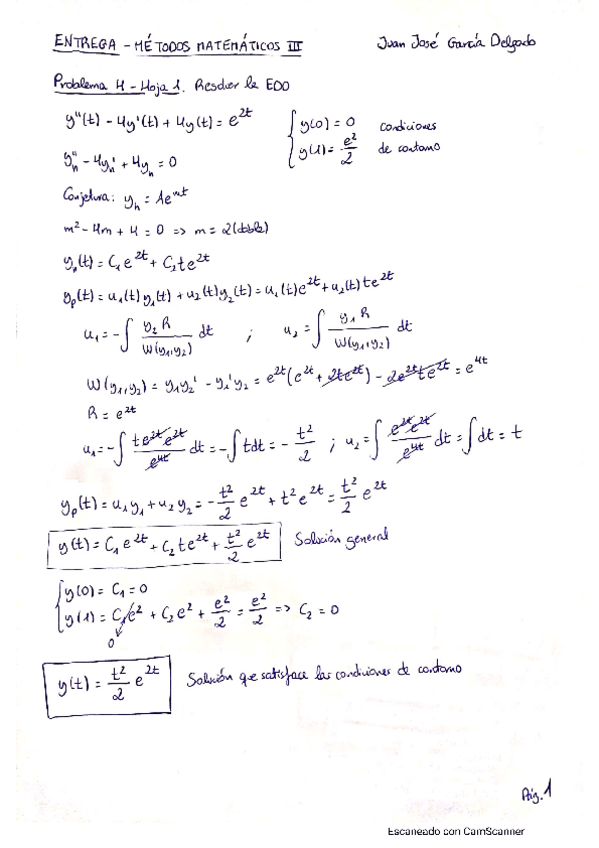 ENTREGA - MÉTODOS MATEMÁTICOS III Juan José García Delgado
Problema 4 - Hoja 1. Resolver la EDO
y''(t) - 4y'(t) + 4y(t) = e^{2t} { y(0) = 0 condiciones
y(1) = e^2/2 de contorno
y_h'' - 4y_h' + 4y_h = 0
Conjetura: y_h = Ae^{mt}
m² - 4m + 4 = 0 => m = 2 (doble)
y_h(t) = C_1 e^{2t} + C_2 t e^{2t}
y_p(t) = u_1(t) y_1(t) + u_2(t) y_2(t) = u_1(t) e^{2t} + u_2(t) t e^{2t}
u_1 = -∫ y_2 R / W(y_1,y_2) dt ; u_2 = ∫ y_1 R / W(y_1,y_2) dt
W(y_1,y_2) = y_1 y_2' - y_1' y_2 = e^{2t}(e^{2t} + 2te^{2t}) - 2e^{2t} t e^{2t} = e^{4t}
R = e^{2t}
u_1 = -∫ t e^{2t} e^{2t} / e^{4t} dt = -∫ t dt = - t²/2 ; u_2 = ∫ e^{2t} e^{2t} / e^{4t} dt = ∫ dt = t
y_p(t) = u_1 y_1 + u_2 y_2 = - t²/2 e^{2t} + t² e^{2t} = t²/2 e^{2t}
y(t) = C_1 e^{2t} + C_2 t e^{2t} + t²/2 e^{2t} Solución general
{ y(0) = C_1 = 0
y(1) = C_1 e² + C_2 e² + e²/2 = e²/2 => C_2 = 0
0
y(t) = t²/2 e^{2t} Solución que satisface las condiciones de contorno
Pág. 1
Escaneado con CamScanner